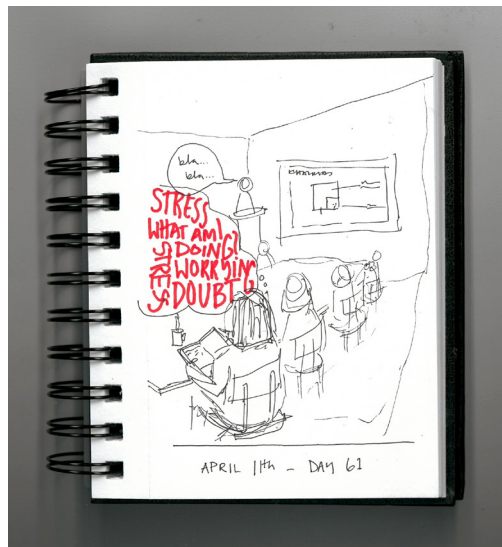 bla...
bla...
STRESS
WHAT AM I
DOING?
STRESS
WORKSING
DOUBT
APRIL 11th - DAY 61